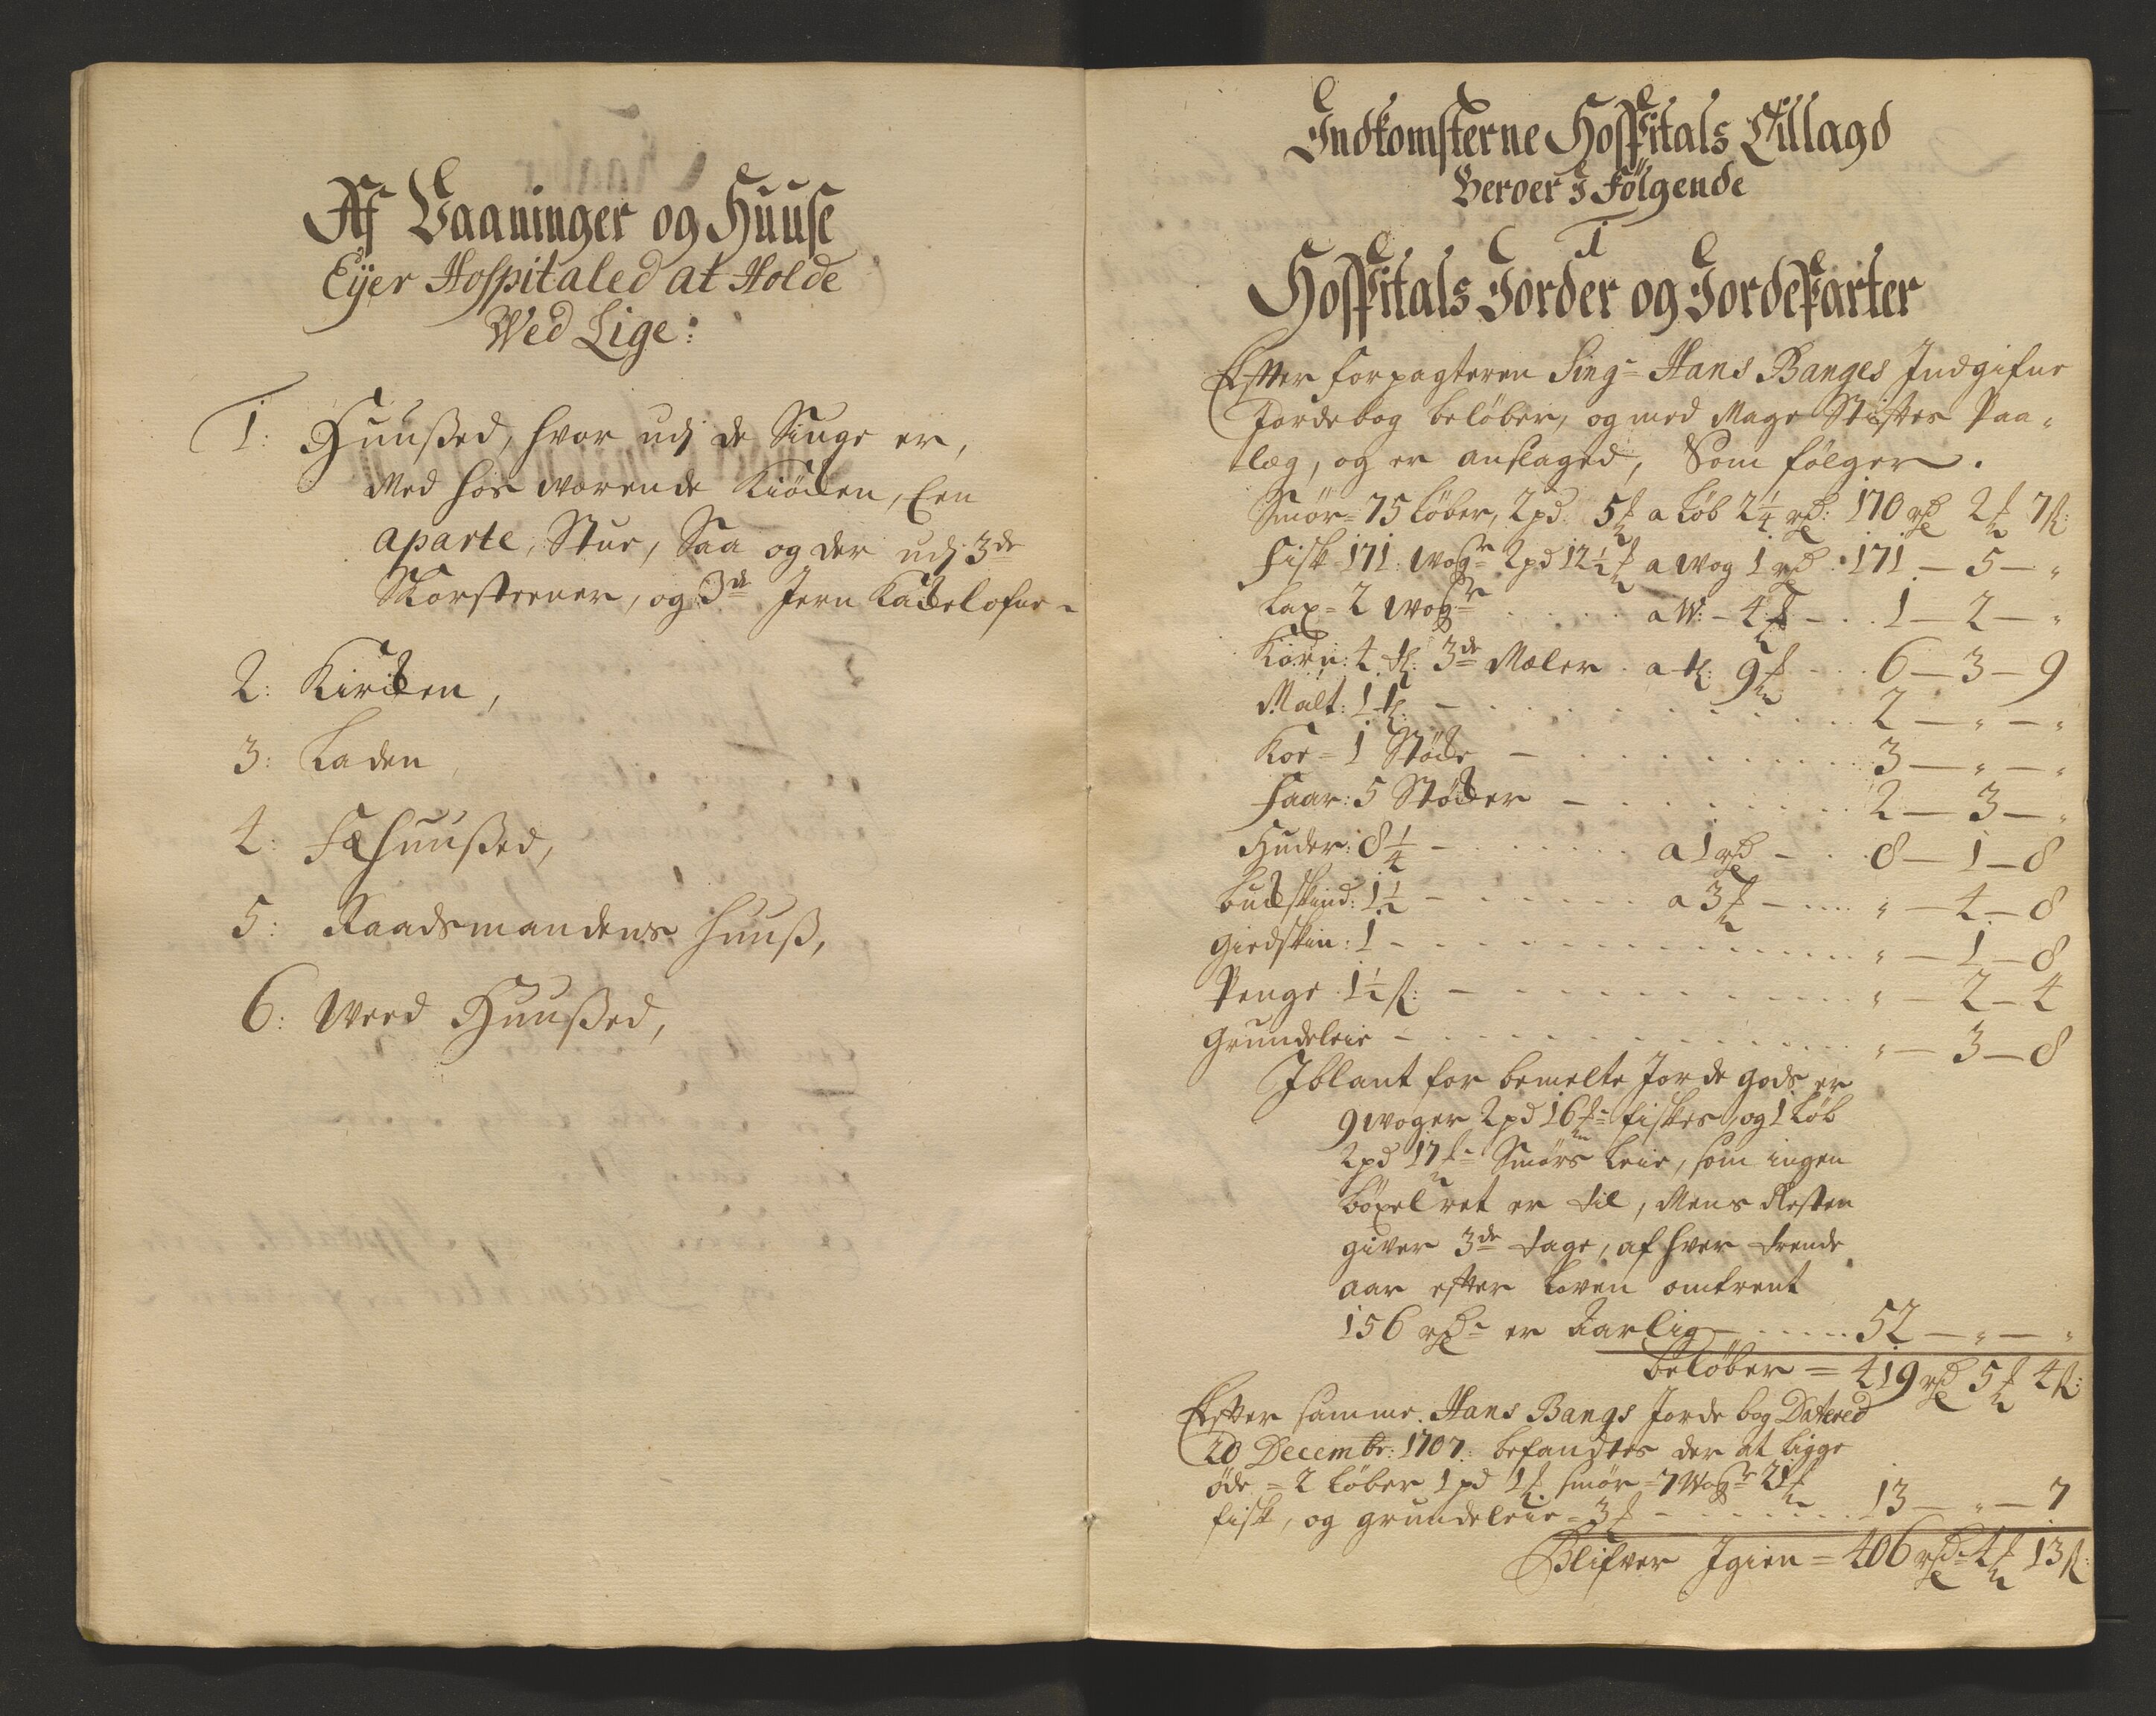 Af Vaaninger og Huuse
Eÿer Hospitaled at Holde
Ved Lige:
1: Huußed, hvor udj de Siuge er,
Med hos værende Kiöcken, Een
aparte, Stue, Saa og der udj 3de
Skorsteener, og 3de Jern Kackelofne
2: Kircken,
3: Laden
4: Fæhuußed,
5: Raadsmandens huuß,
6: Veed Huußed,
Indkomsterne Hospitals Tillagd
Beroer I Fölgende
1
Hospitals Jorder og Jordeparter
Efter Forpagteren Sing= Hans Banges Indgifne
Jordebog belöber, og med Mage Skiftes Paa=
læg, og er anslaged, Som fölger.
Smör= 75 Löber, 2 pd. 5 ℔ a Löb 2¼ rd: 170 rd 2 ℔ 7 ß:
Fisk= 171: Wogr 2 pd 12½ ℔ a Wog 1 rd: 171 — 5 — "
Lax= 2 Wogr ..... a W: – 4 ℔ – .. 1 — 2 — "
Korn: 4 tl: 3de Mæler . a tl: 9 ℔ ... 6 — 3 — 9
Malt: 1 tl: — ............ 2 — " — "
Koe= 1 Støcke — ............ 3 — " — "
Faar: 5 Stöcker — ............ 2 — 3 — "
Huder: 8¼ — ....... a 1 rd – .. 8 — 1 — 8
Buckskind: 1½ — ....... a 3 ℔ – .... " — 4 — 8
Giedskin: 1 — ............ " — 1 — 8
Penge 1½ ß: — ............ " — 2 — 4
Grundeleie — ............ " — 3 — 8
Iblant for bemelte Jorde gods er
9 Woger 2 pd 16 ℔= Fiskes, og 1 Löb
2 pd 17 ℔= Smörs Leie, som ingen
Böxel ret er til, Mens Resten
giver 3de tage, af hver trende
aar efter Loven omtrent
156 rd= er Aarlig ...... 52 — " — "
Belöber = 419 rd 5 ℔ 4 ß:
Efter samme Hans Bangs Jorde bog Datered
20 Decembr: 1707: befandtes der at ligge
öde = 2 Löber 1 pd 1 ℔ Smör= 7 Wogr 21 ℔
fisk, og grundeleie= 3 ℔ — ........ 13 — " — 7
Blifver Igien = 406 rd= 4 ℔ 13 ß: